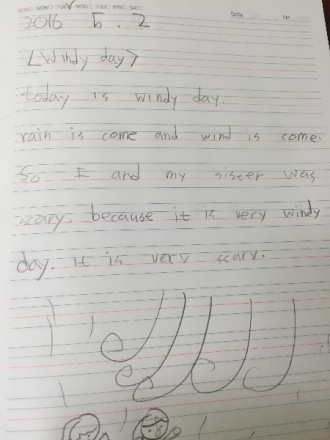 2016 5. 2
<Windy day>
today is windy day.
rain is come and wind is come.
So I and my sister was
scary. because it is very windy
day. It is very scary.